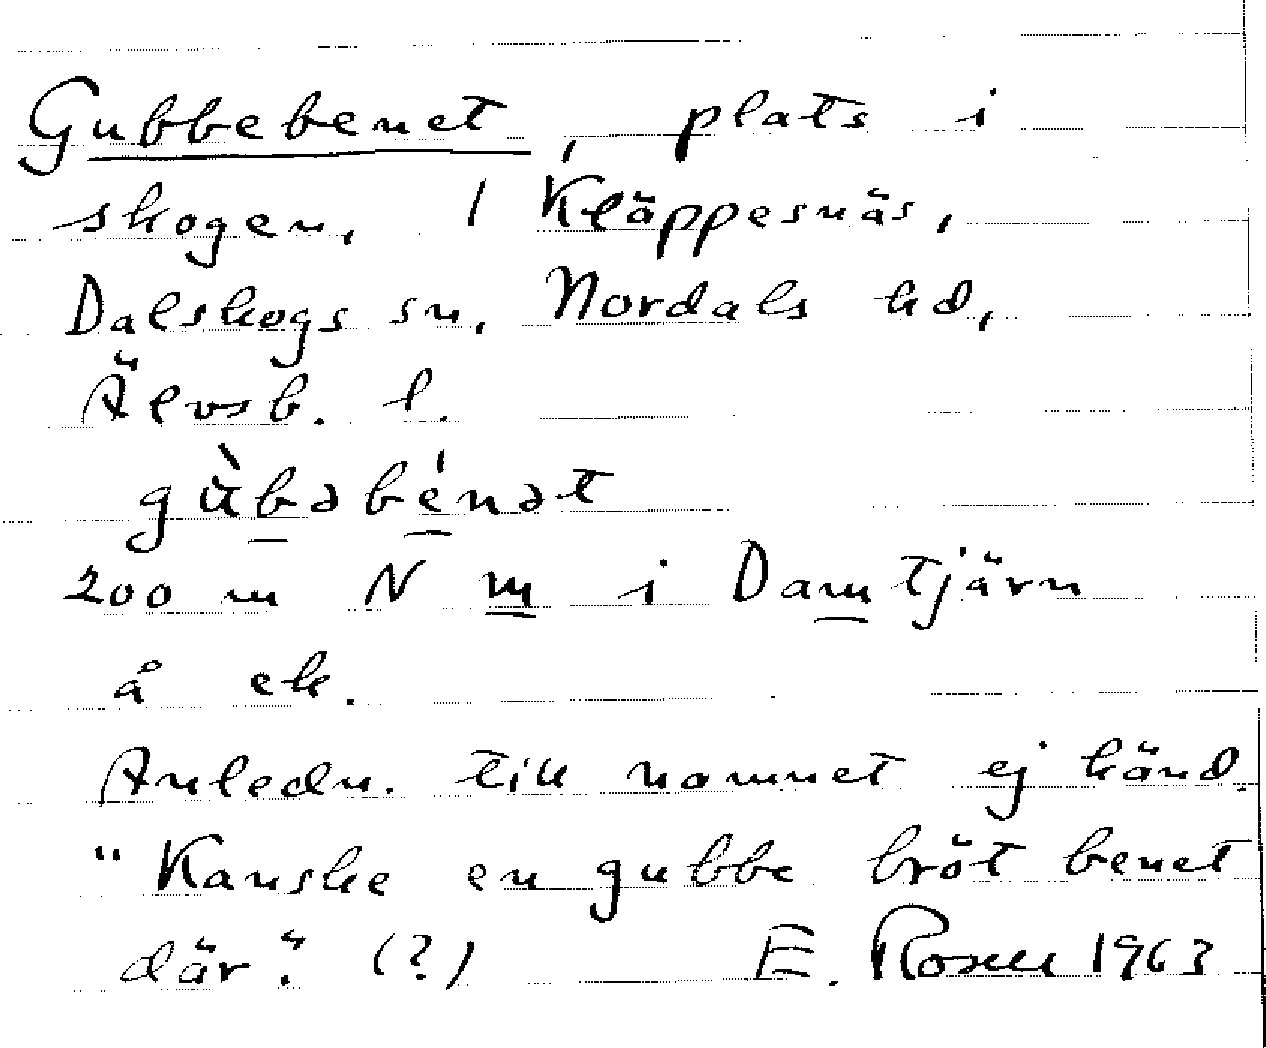 Gubbebenet, plats i
skogen, 1 Kläppesnäs,
Dalskogs sn, Nordals hd,
Älvsb. l.
gùbəbénət
200 m N m i Damtjärn
å ek.
Anledn. till namnet ej känd.
"Kanske en gubbe bröt benet
där". (?) E. Rosell 1963